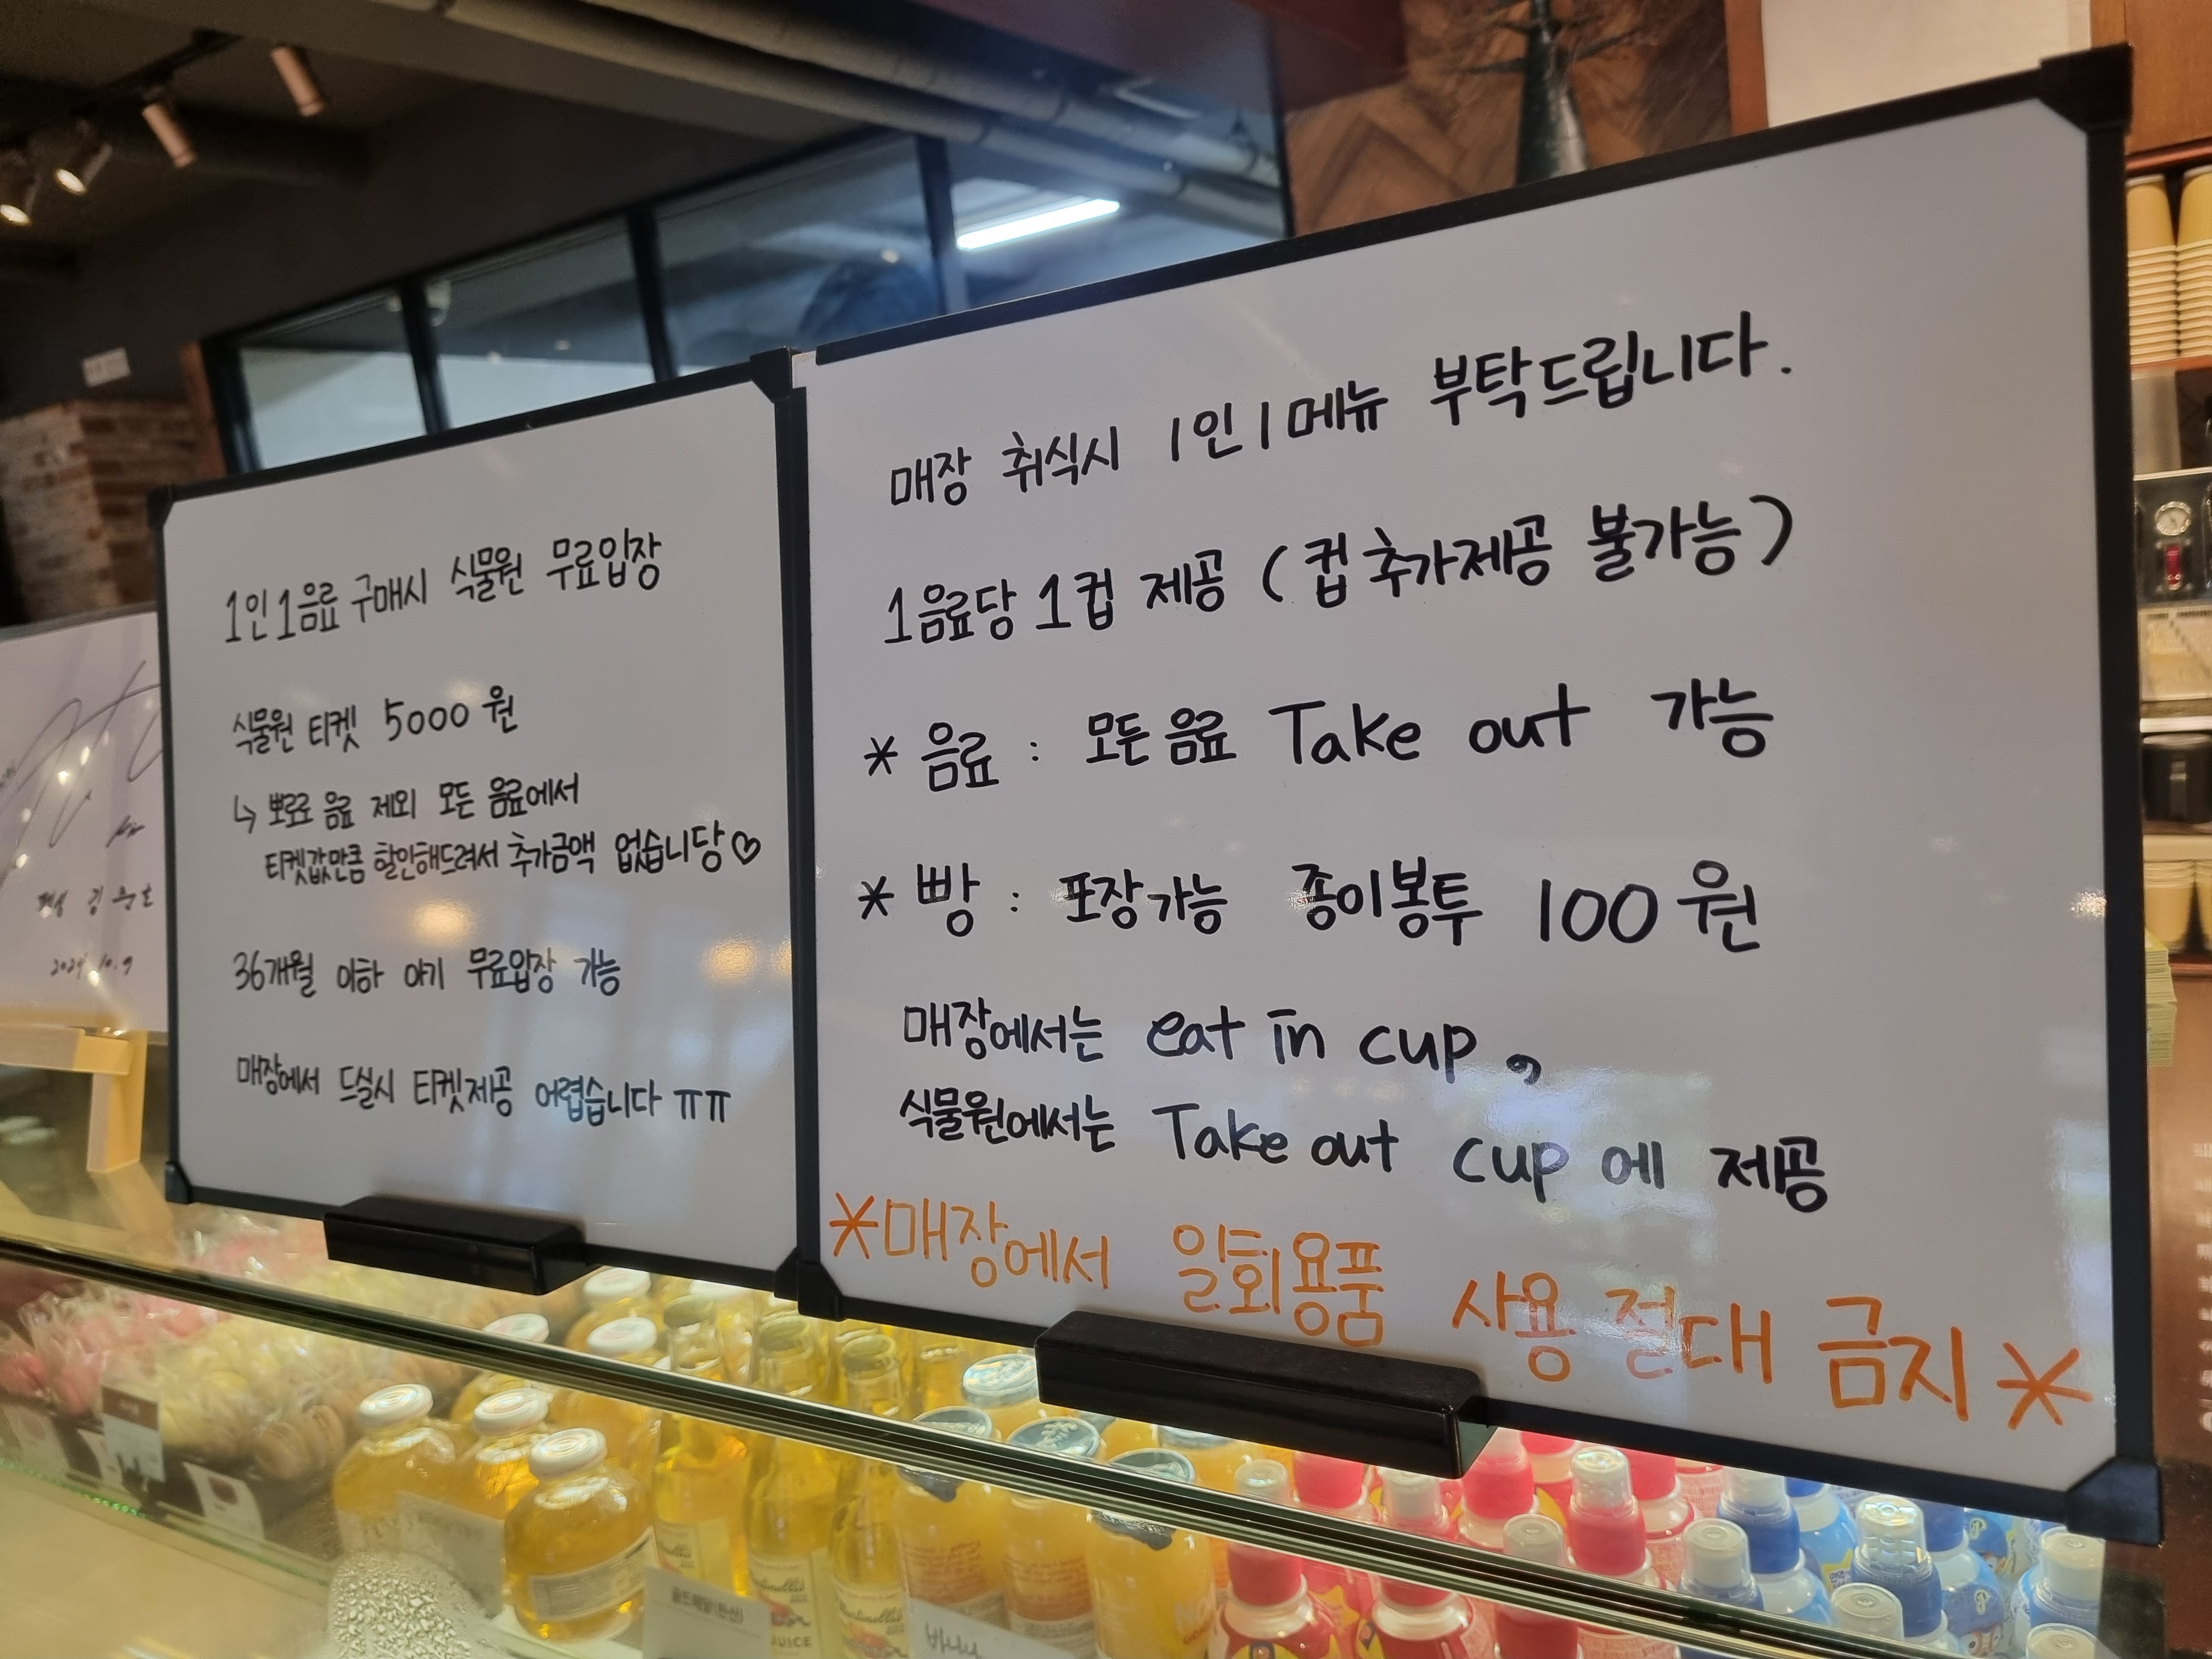 1인 1음료 구매시 식물원 무료입장
식물원 티켓 5000원
↳ 뽀로로 음료 제외 모든 음료에서
티켓값만큼 할인해드려서 추가금액 없습니당♡
36개월 이하 아기 무료입장 가능
매장에서 드실시 티켓제공 어렵습니다 ㅠㅠ
매장 취식시 1인 1메뉴 부탁드립니다.
1음료당 1컵 제공 (컵 추가제공 불가능)
* 음료 : 모든 음료 Take out 가능
* 빵 : 포장가능 종이봉투 100원
매장에서는 eat in cup,
식물원에서는 Take out cup 에 제공
*매장에서 일회용품 사용 절대 금지*
JUICE